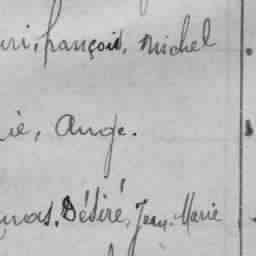 françois, Michel
Ange.
Désiré, Jean-Marie